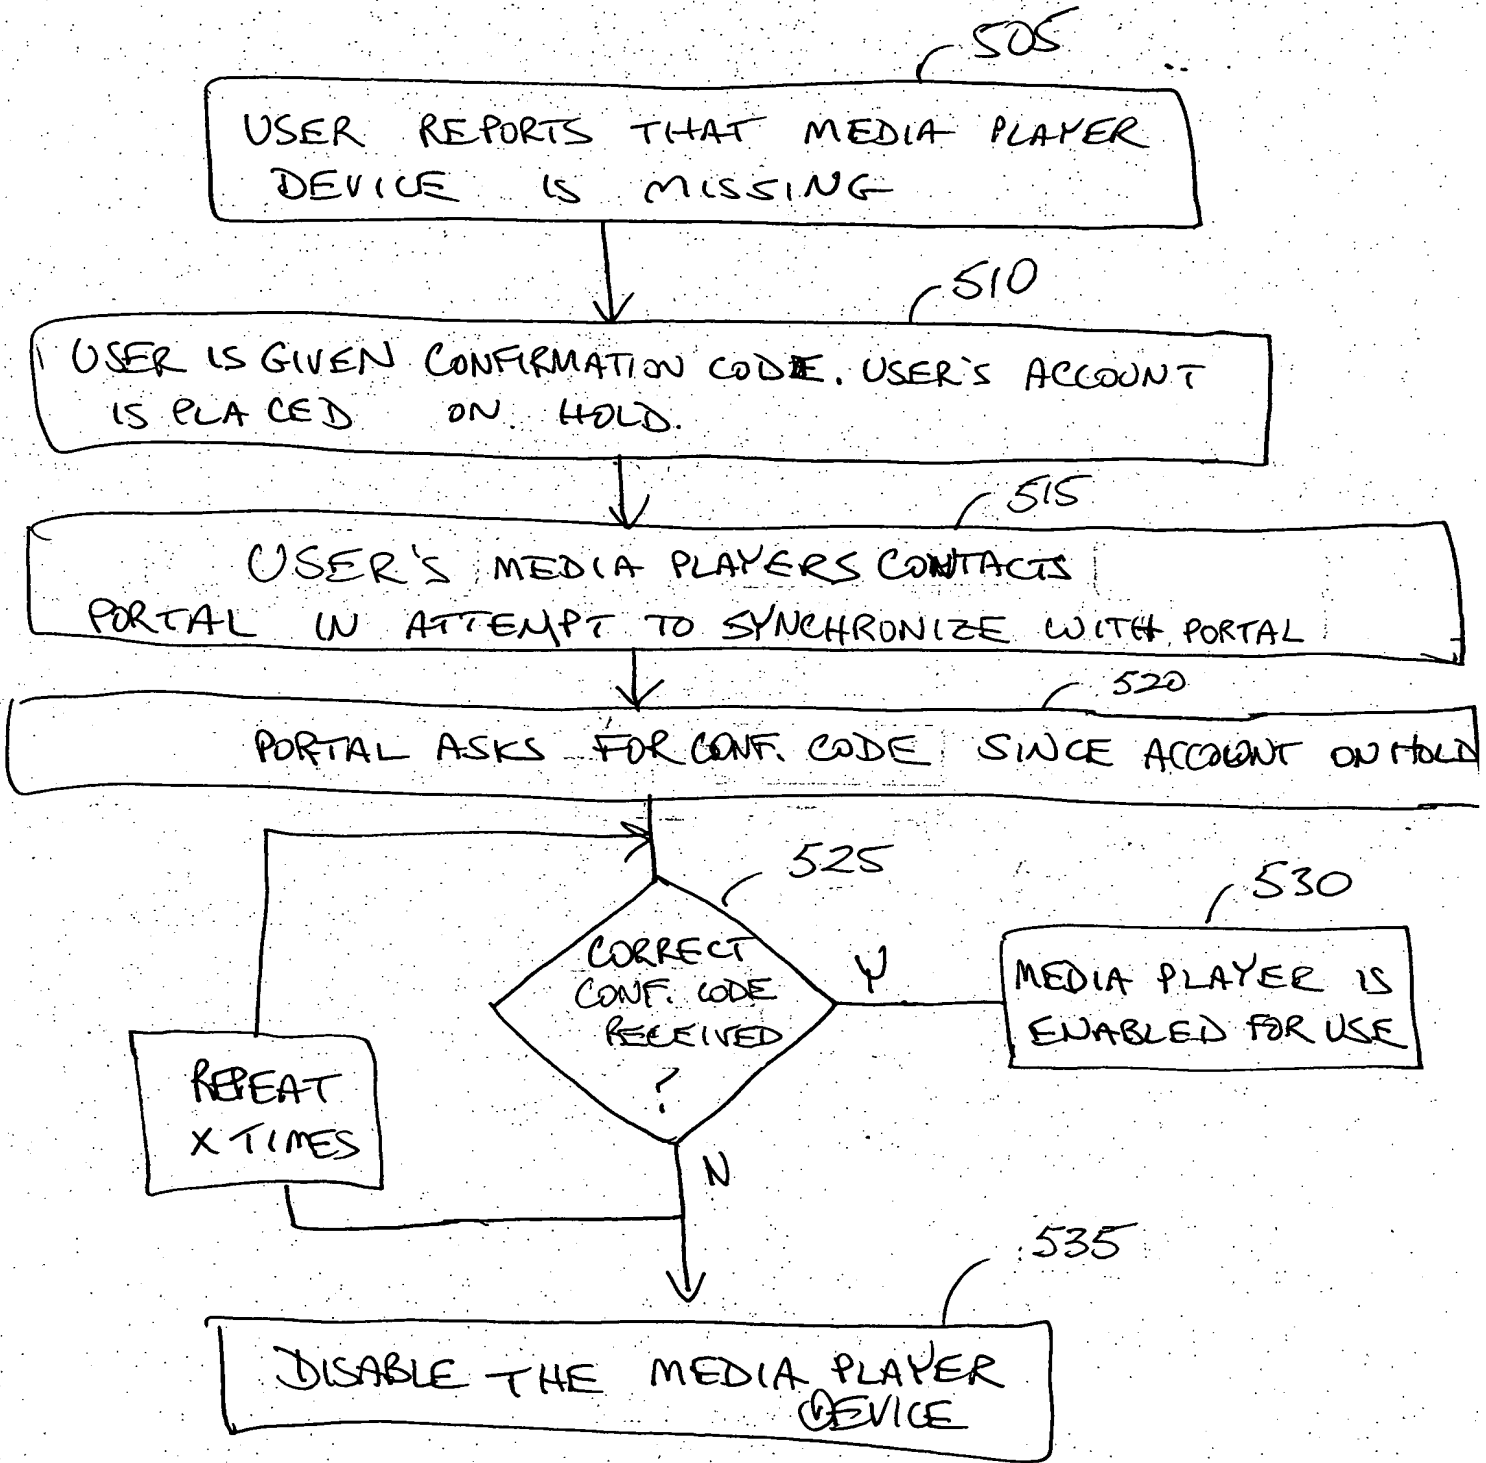 505
USER REPORTS THAT MEDIA PLAYER
DEVICE IS MISSING
510
USER IS GIVEN CONFIRMATION CODE. USER'S ACCOUNT
IS PLACED ON HOLD.
515
USER'S MEDIA PLAYERS CONTACTS
PORTAL IN ATTEMPT TO SYNCHRONIZE WITH PORTAL
520
PORTAL ASKS FOR CONF. CODE SINCE ACCOUNT ON HOLD
525
CORRECT
CONF. CODE
RECEIVED
?
Y
530
MEDIA PLAYER IS
ENABLED FOR USE
REPEAT
X TIMES
N
535
DISABLE THE MEDIA PLAYER
DEVICE